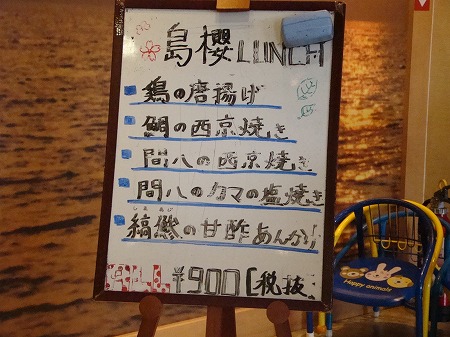 島櫻LUNCH
鶏の唐揚げ
鯛の西京焼き
間八の西京焼き
間八のカマの塩焼き
しまあじ
縞鯵の甘酢あんかけ
¥900(税抜)
Happy animals